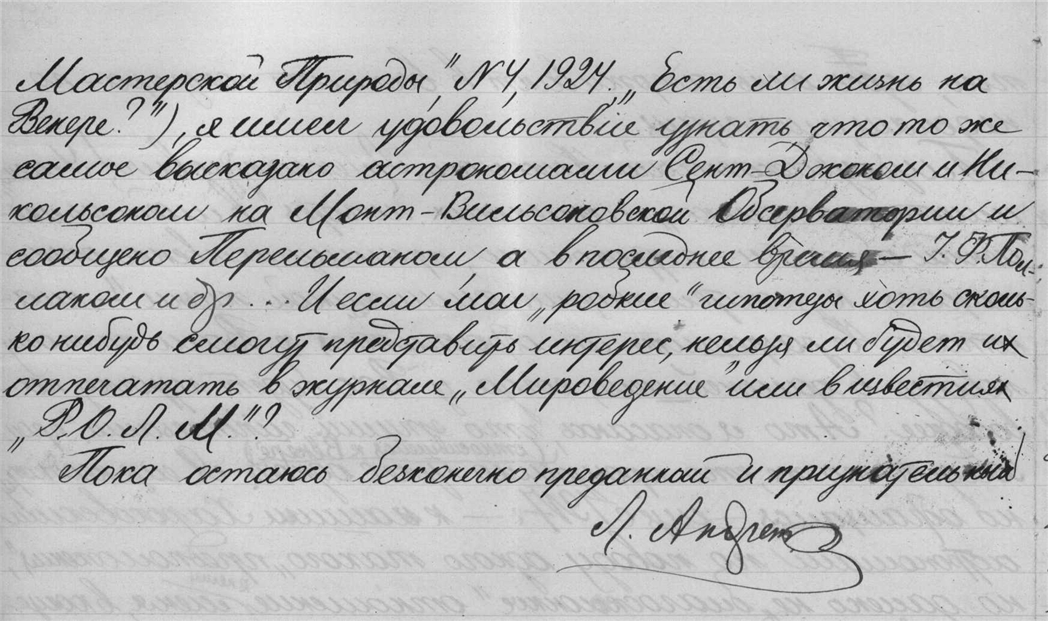 Мастерской Природы", N 4, 1924. „Есть ли жизнь на
Венере?"), я имел удовольствие узнать что то же
самое высказано астрономами Сент-Джоном и Ни-
кольсоном на Монт-Вильсоновской Обсерватории и
сообщено Перельманом, а в последнее время – І. Ф. Пол-
лаком и др... И если мои „робкие" гипотезы хоть сколь-
ко нибудь смогут представить интерес, нельзя ли будет их
отпечатать в журнале „Мироведение" или в известиях
„Р.О.Л.М."?
Пока остаюсь безконечно преданный и признательный
Л. Андрен